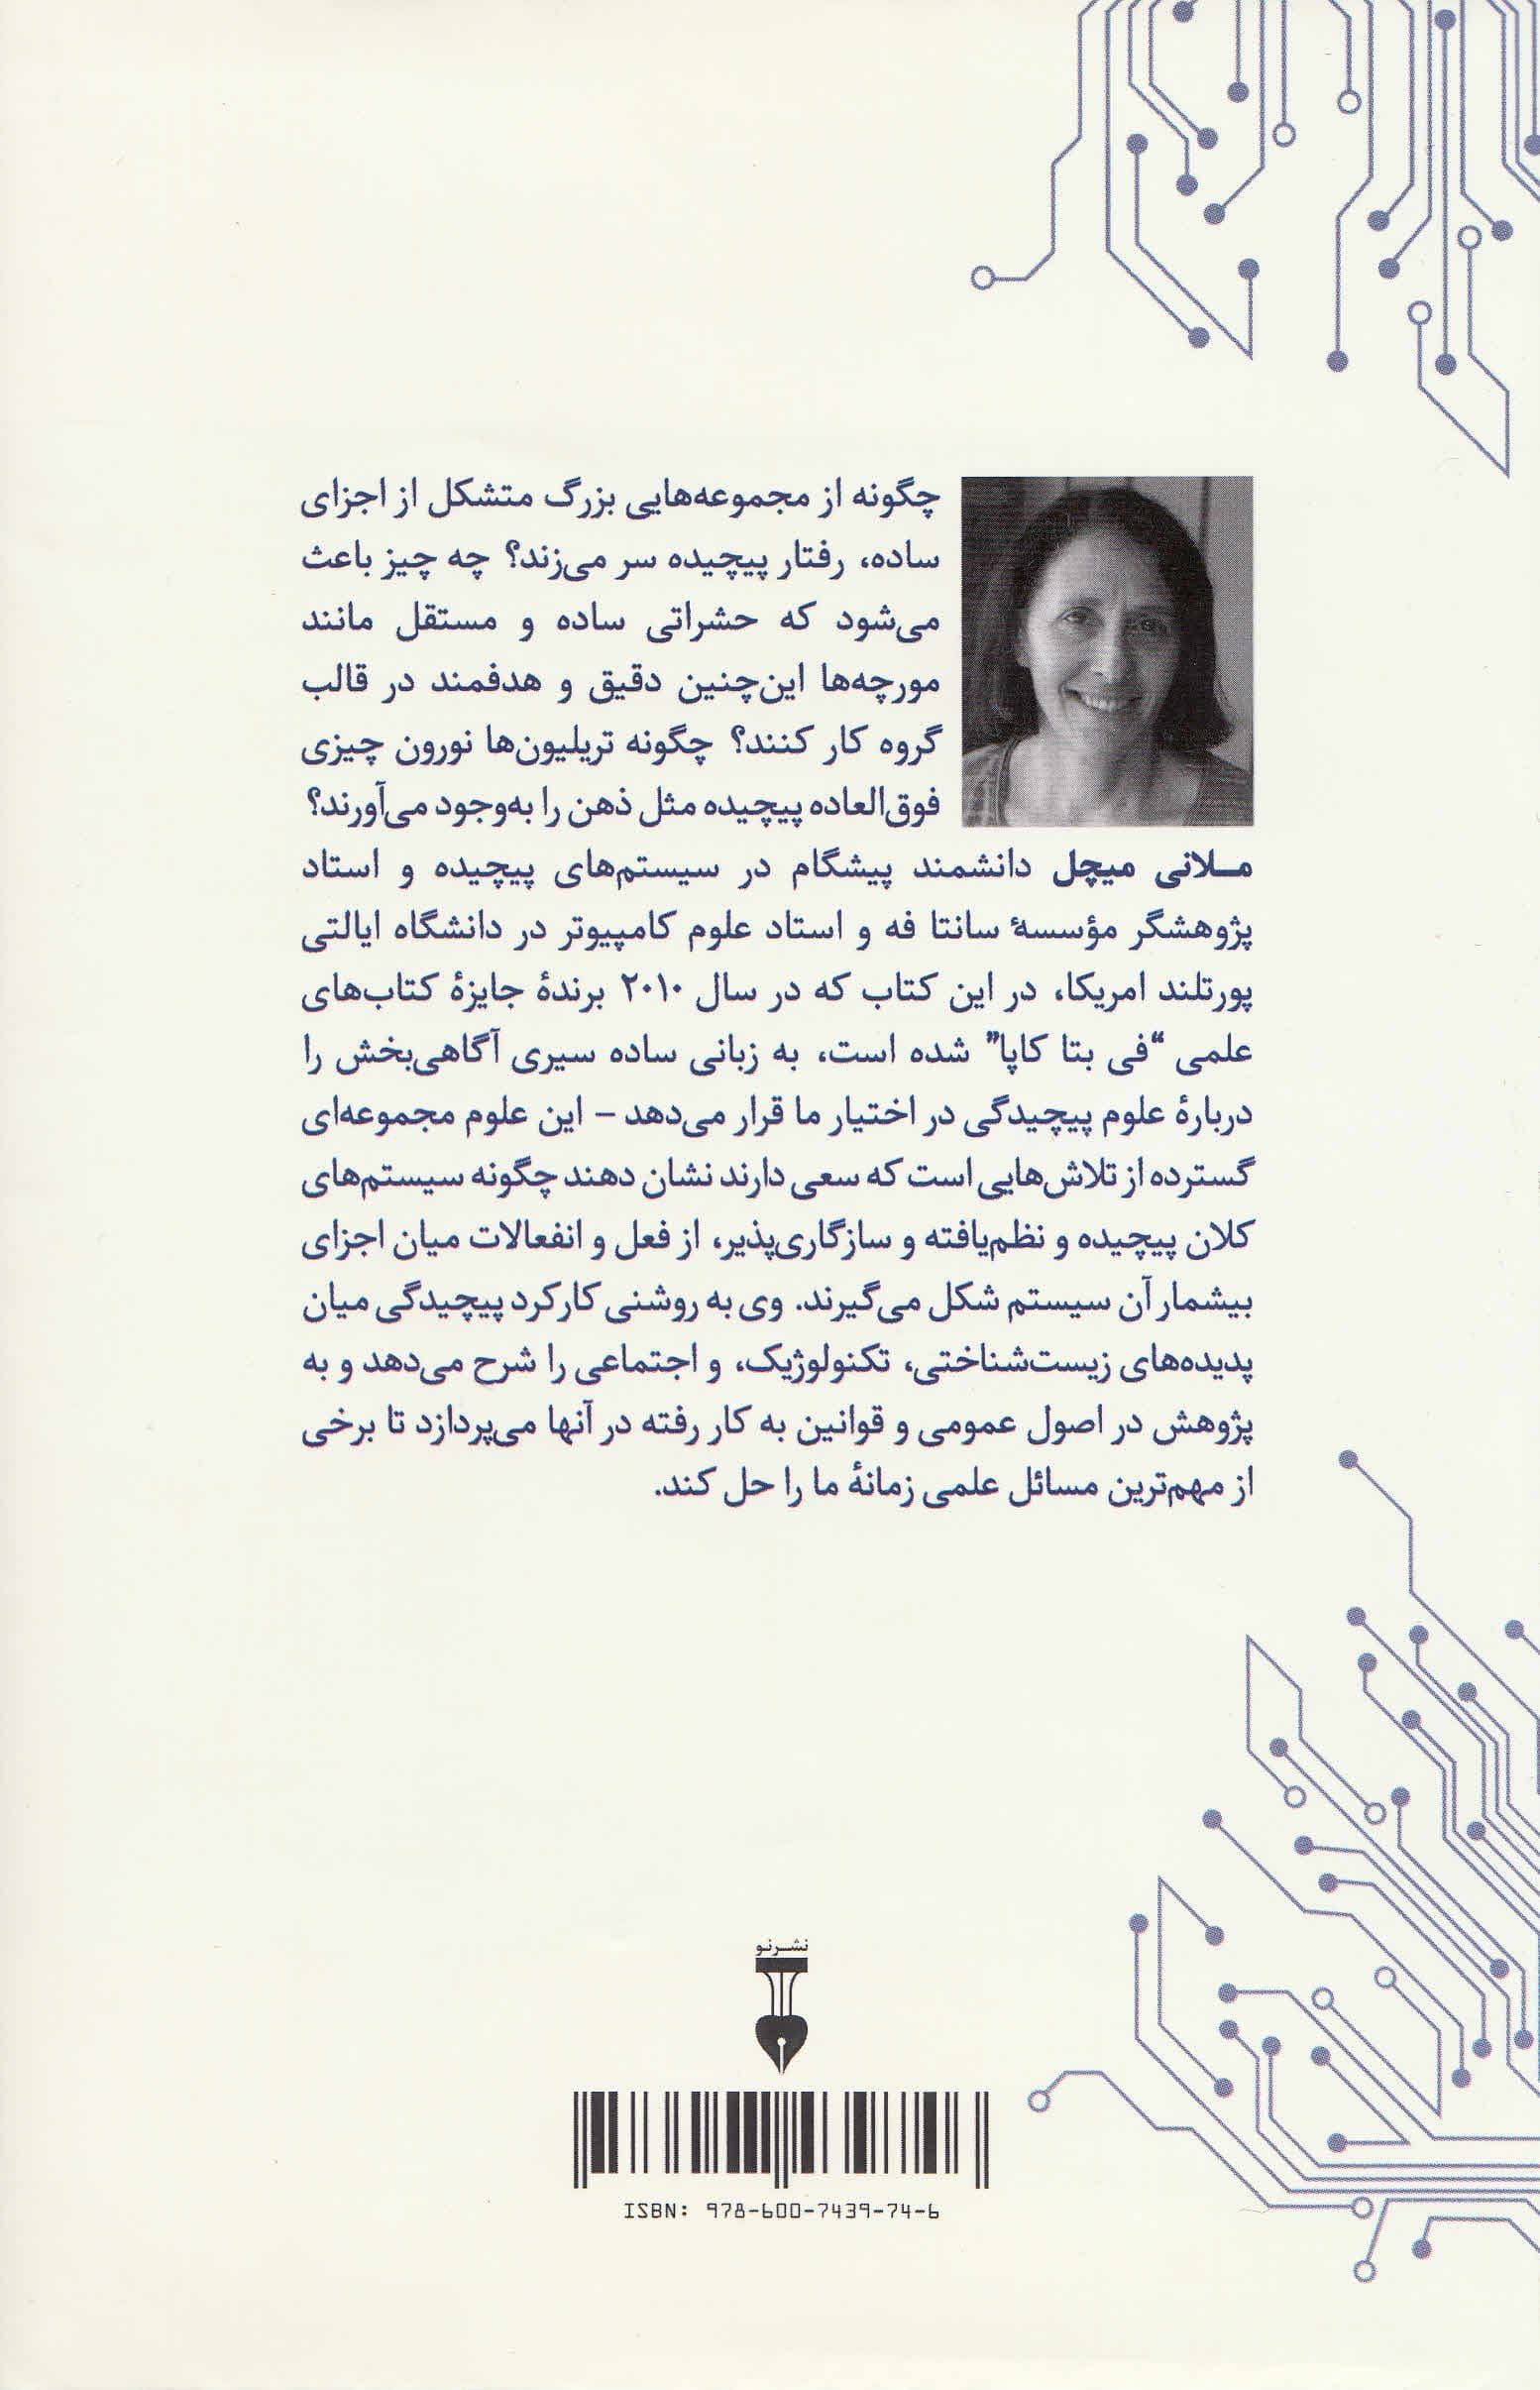 چگونه از مجموعه‌هایی بزرگ متشکل از اجزای
ساده، رفتار پیچیده سر می‌زند؟ چه چیز باعث
می‌شود که حشراتی ساده و مستقل مانند
مورچه‌ها این‌چنین دقیق و هدفمند در قالب
گروه کار کنند؟ چگونه تریلیون‌ها نورون چیزی
فوق‌العاده پیچیده مثل ذهن را به‌وجود می‌آورند؟
مـلانی میچل دانشمند پیشگام در سیستم‌های پیچیده و استاد
پژوهشگر مؤسسهٔ سانتا فه و استاد علوم کامپیوتر در دانشگاه ایالتی
پورتلند امریکا، در این کتاب که در سال ۲۰۱۰ برندهٔ جایزهٔ کتاب‌های
علمی “فی بتا کاپا” شده است، به زبانی ساده سیری آگاهی‌بخش را
دربارهٔ علوم پیچیدگی در اختیار ما قرار می‌دهد – این علوم مجموعه‌ای
گسترده از تلاش‌هایی است که سعی دارند نشان دهند چگونه سیستم‌های
کلان پیچیده و نظم‌یافته و سازگاری‌پذیر، از فعل و انفعالات میان اجزای
بیشمار آن سیستم شکل می‌گیرند. وی به روشنی کارکرد پیچیدگی میان
پدیده‌های زیست‌شناختی، تکنولوژیک، و اجتماعی را شرح می‌دهد و به
پژوهش در اصول عمومی و قوانین به کار رفته در آنها می‌پردازد تا برخی
از مهم‌ترین مسائل علمی زمانهٔ ما را حل کند.
نشرنو
ISBN: 978-600-7439-74-6